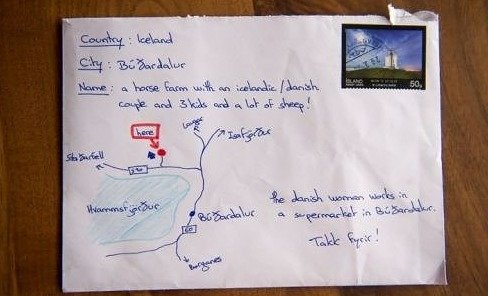 Country : Iceland
City : Búðardalur
Name : a horse farm with an icelandic/danish
couple and 3 kids and a lot of sheep!
here
Laugar
Ísafjörður
590
Hvammsfjörður
Búðardalur
60
Borgarnes
the danish woman works in
a supermarket in Búðardalur.
Takk fyrir!
ÍSLAND
50g